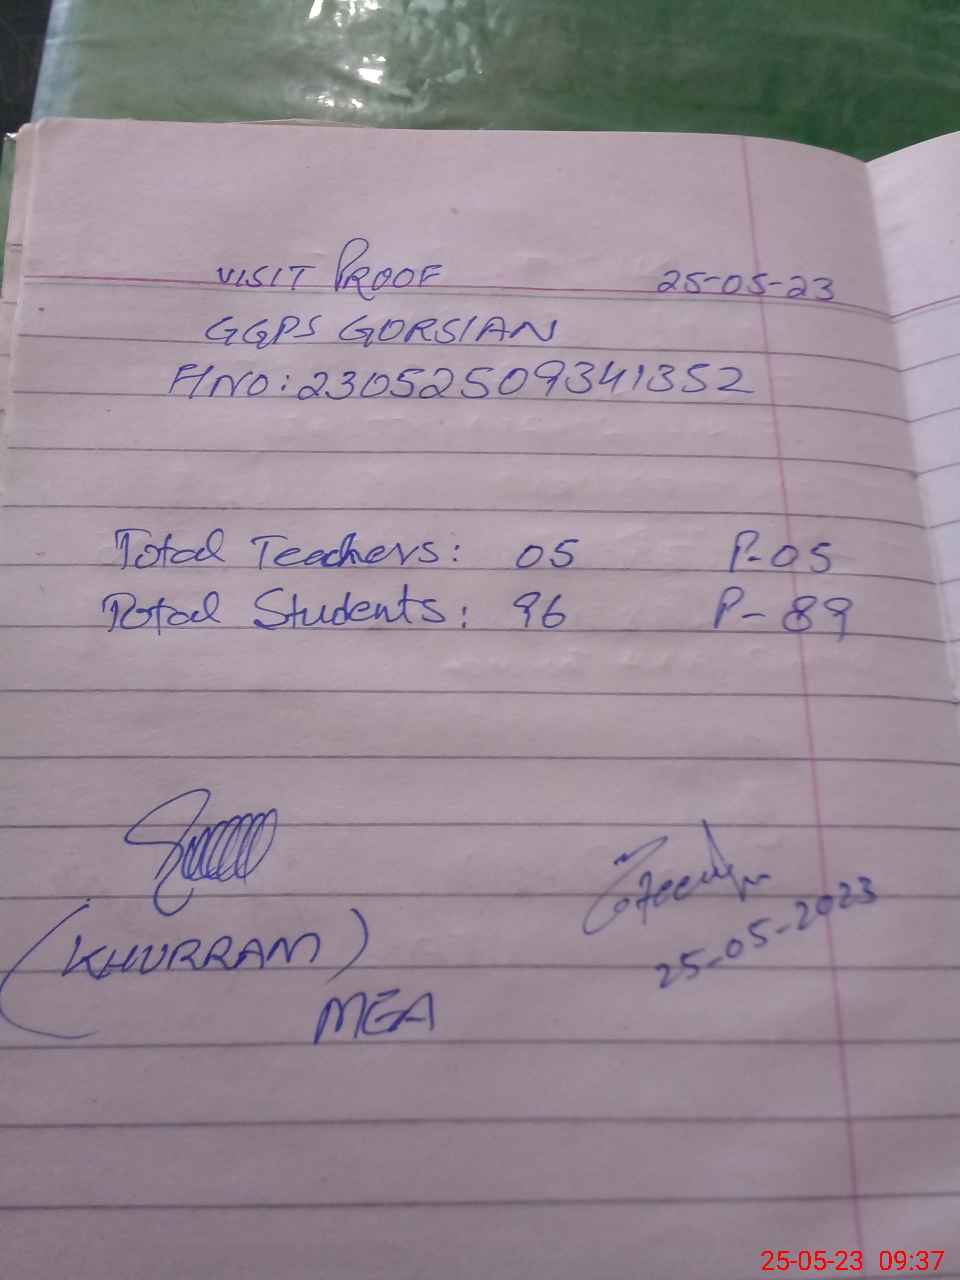 VISIT PROOF 25-05-23
GGPS GORSIAN
F/NO: 23052509341352
Total Teachers: 05 P-05
Total Students: 96 P-89
(KHURRAM)
25-05-2023
MEA
25-05-23 09:37